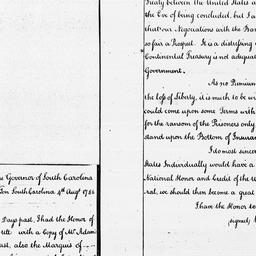 Treaty between the United States a
the Eve of being concluded, but I a
that our Negociations with the Bar
so fair a Prospect. It is a distressing
Continental Treasury is not adequat
Government.
As no Premium
the loss of Liberty, it is much to be wi
could come upon some Terms with
for the ransom of the Prisoners only
stand upon the Bottom of Insuran
I do most sincer
States Individually would have a
National Honor and Credit of the U
ral, we should then become a great
I have the Honor to
signed,
e Governor of South Carolina
Ton South Carolina 4th Augt 1786
Days past, I had the Honor of
with a Copy of Mr Adam
ast, also the Marquis of